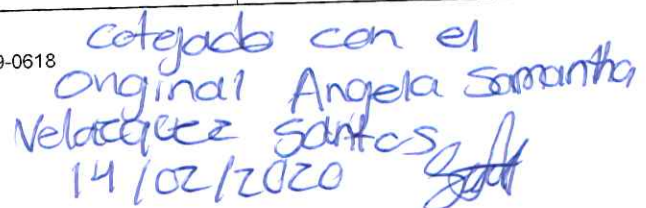 9-0618
cotejado con el
Original Angela Samantha
Velazquez Santos
14/02/2020